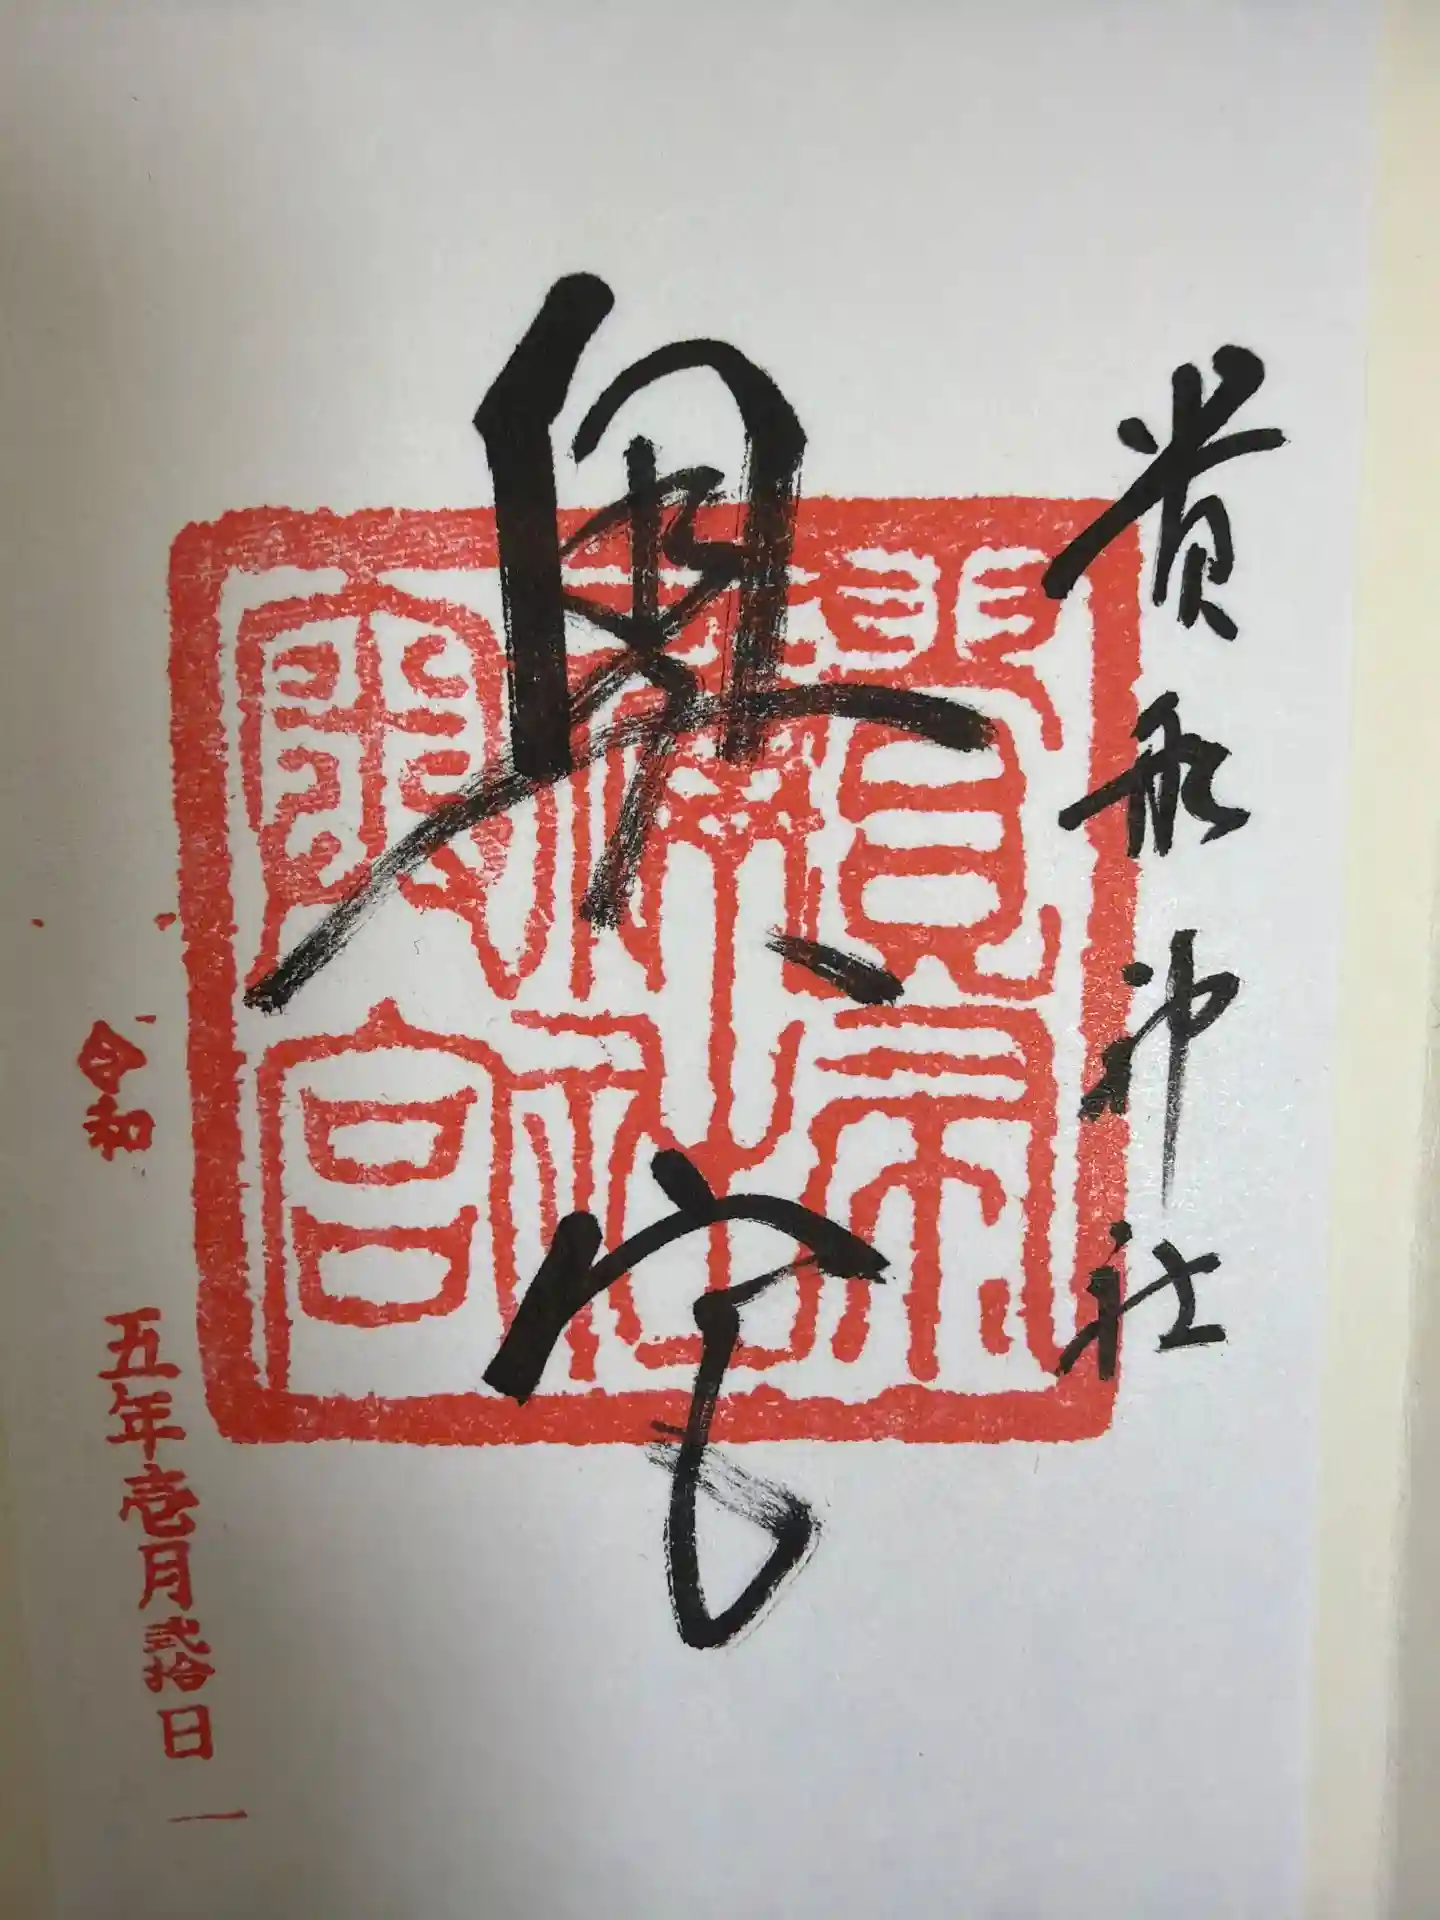 貴船神社
奥宮
貴布
禰社
奥宮
令和 五年壱月弐拾日